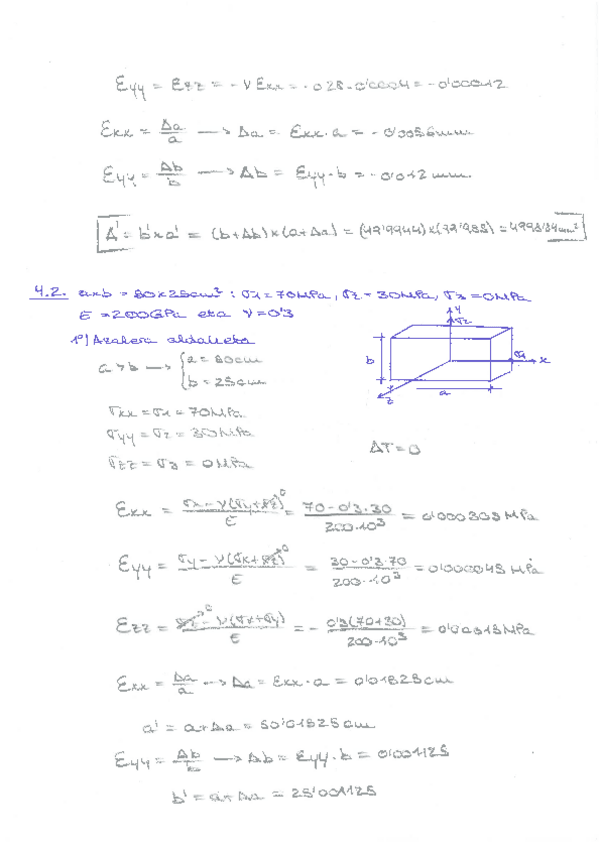 Eyy = Ezz = -ν Exx = -0'28·0'0004 = -0'00012
Exx = Δa/a → Δa = Exx·a = -0'0056mm
Eyy = Δb/b → Δb = Eyy·b = -0'012 mm
A' = b'×a' = (b+Δb)×(a+Δa) =
4.2. a×b = 60×25cm² : σ1 = 70MPa, σ2 = 30MPa, σ3 = 0MPa
E = 200GPa eta ν = 0'3
1º) Azalera aldaketa
a > b → { a = 60cm
b = 25cm
y
σ2
b
σ1
x
z
a
σxx = σ1 = 70MPa
σyy = σ2 = 30MPa
σzz = σ3 = 0MPa
ΔT = 0
Exx = σx - ν(σy+σz)⁰/E = 70-0'3·30/200·10³ = 0'000305 MPa
Eyy = σy - ν(σx+σz)⁰/E = 30-0'3·70/200·10³ = 0'000045 MPa
Ezz = σz⁰ - ν(σx+σy)/E = - 0'3(70+30)/200·10³ = 0'00015MPa
Exx = Δa/a → Δa = Exx·a = 0'01825cm
a' = a+Δa = 60'01825cm
Eyy = Δb/b → Δb = Eyy·b = 0'001125
b' = a+Δa = 25'001125